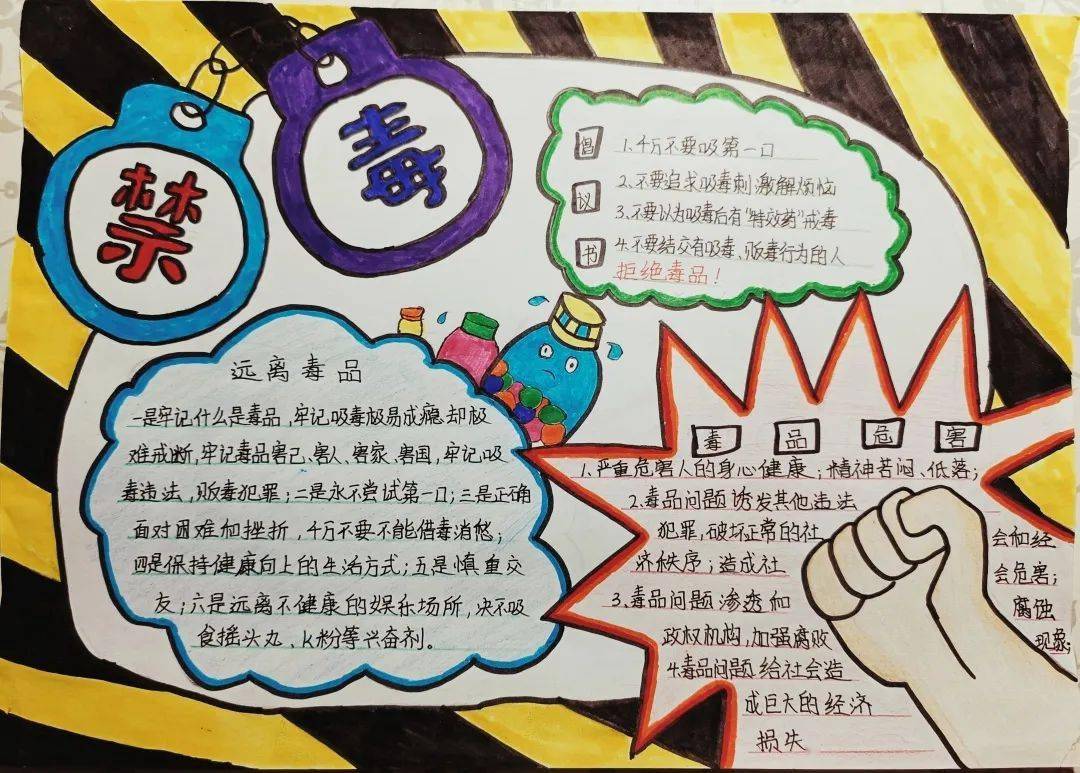 禁
毒
倡议书
1.千万不要吸第一口
2.不要追求吸毒刺激解烦恼
3.不要认为吸毒后有"特效药"戒毒
4.不要结交有吸毒、贩毒行为的人
拒绝毒品！
远离毒品
一是牢记什么是毒品,牢记吸毒极易成瘾却极
难戒断,牢记毒品害己、害人、害家、害国,牢记吸
毒违法,贩毒犯罪;二是永不尝试第一口;三是正确
面对困难和挫折,千万不要不能借毒消愁;
四是保持健康向上的生活方式;五是慎重交
友;六是远离不健康的娱乐场所,决不吸
食摇头丸、K粉等兴奋剂。
毒品危害
1.严重危害人的身心健康;精神苦闷、低落;
2.毒品问题诱发其他违法
犯罪,破坏正常的社会和经
济秩序;造成社会危害;
3.毒品问题渗透和腐蚀
政权机构,加强腐败现象;
4.毒品问题给社会造
成巨大的经济
损失